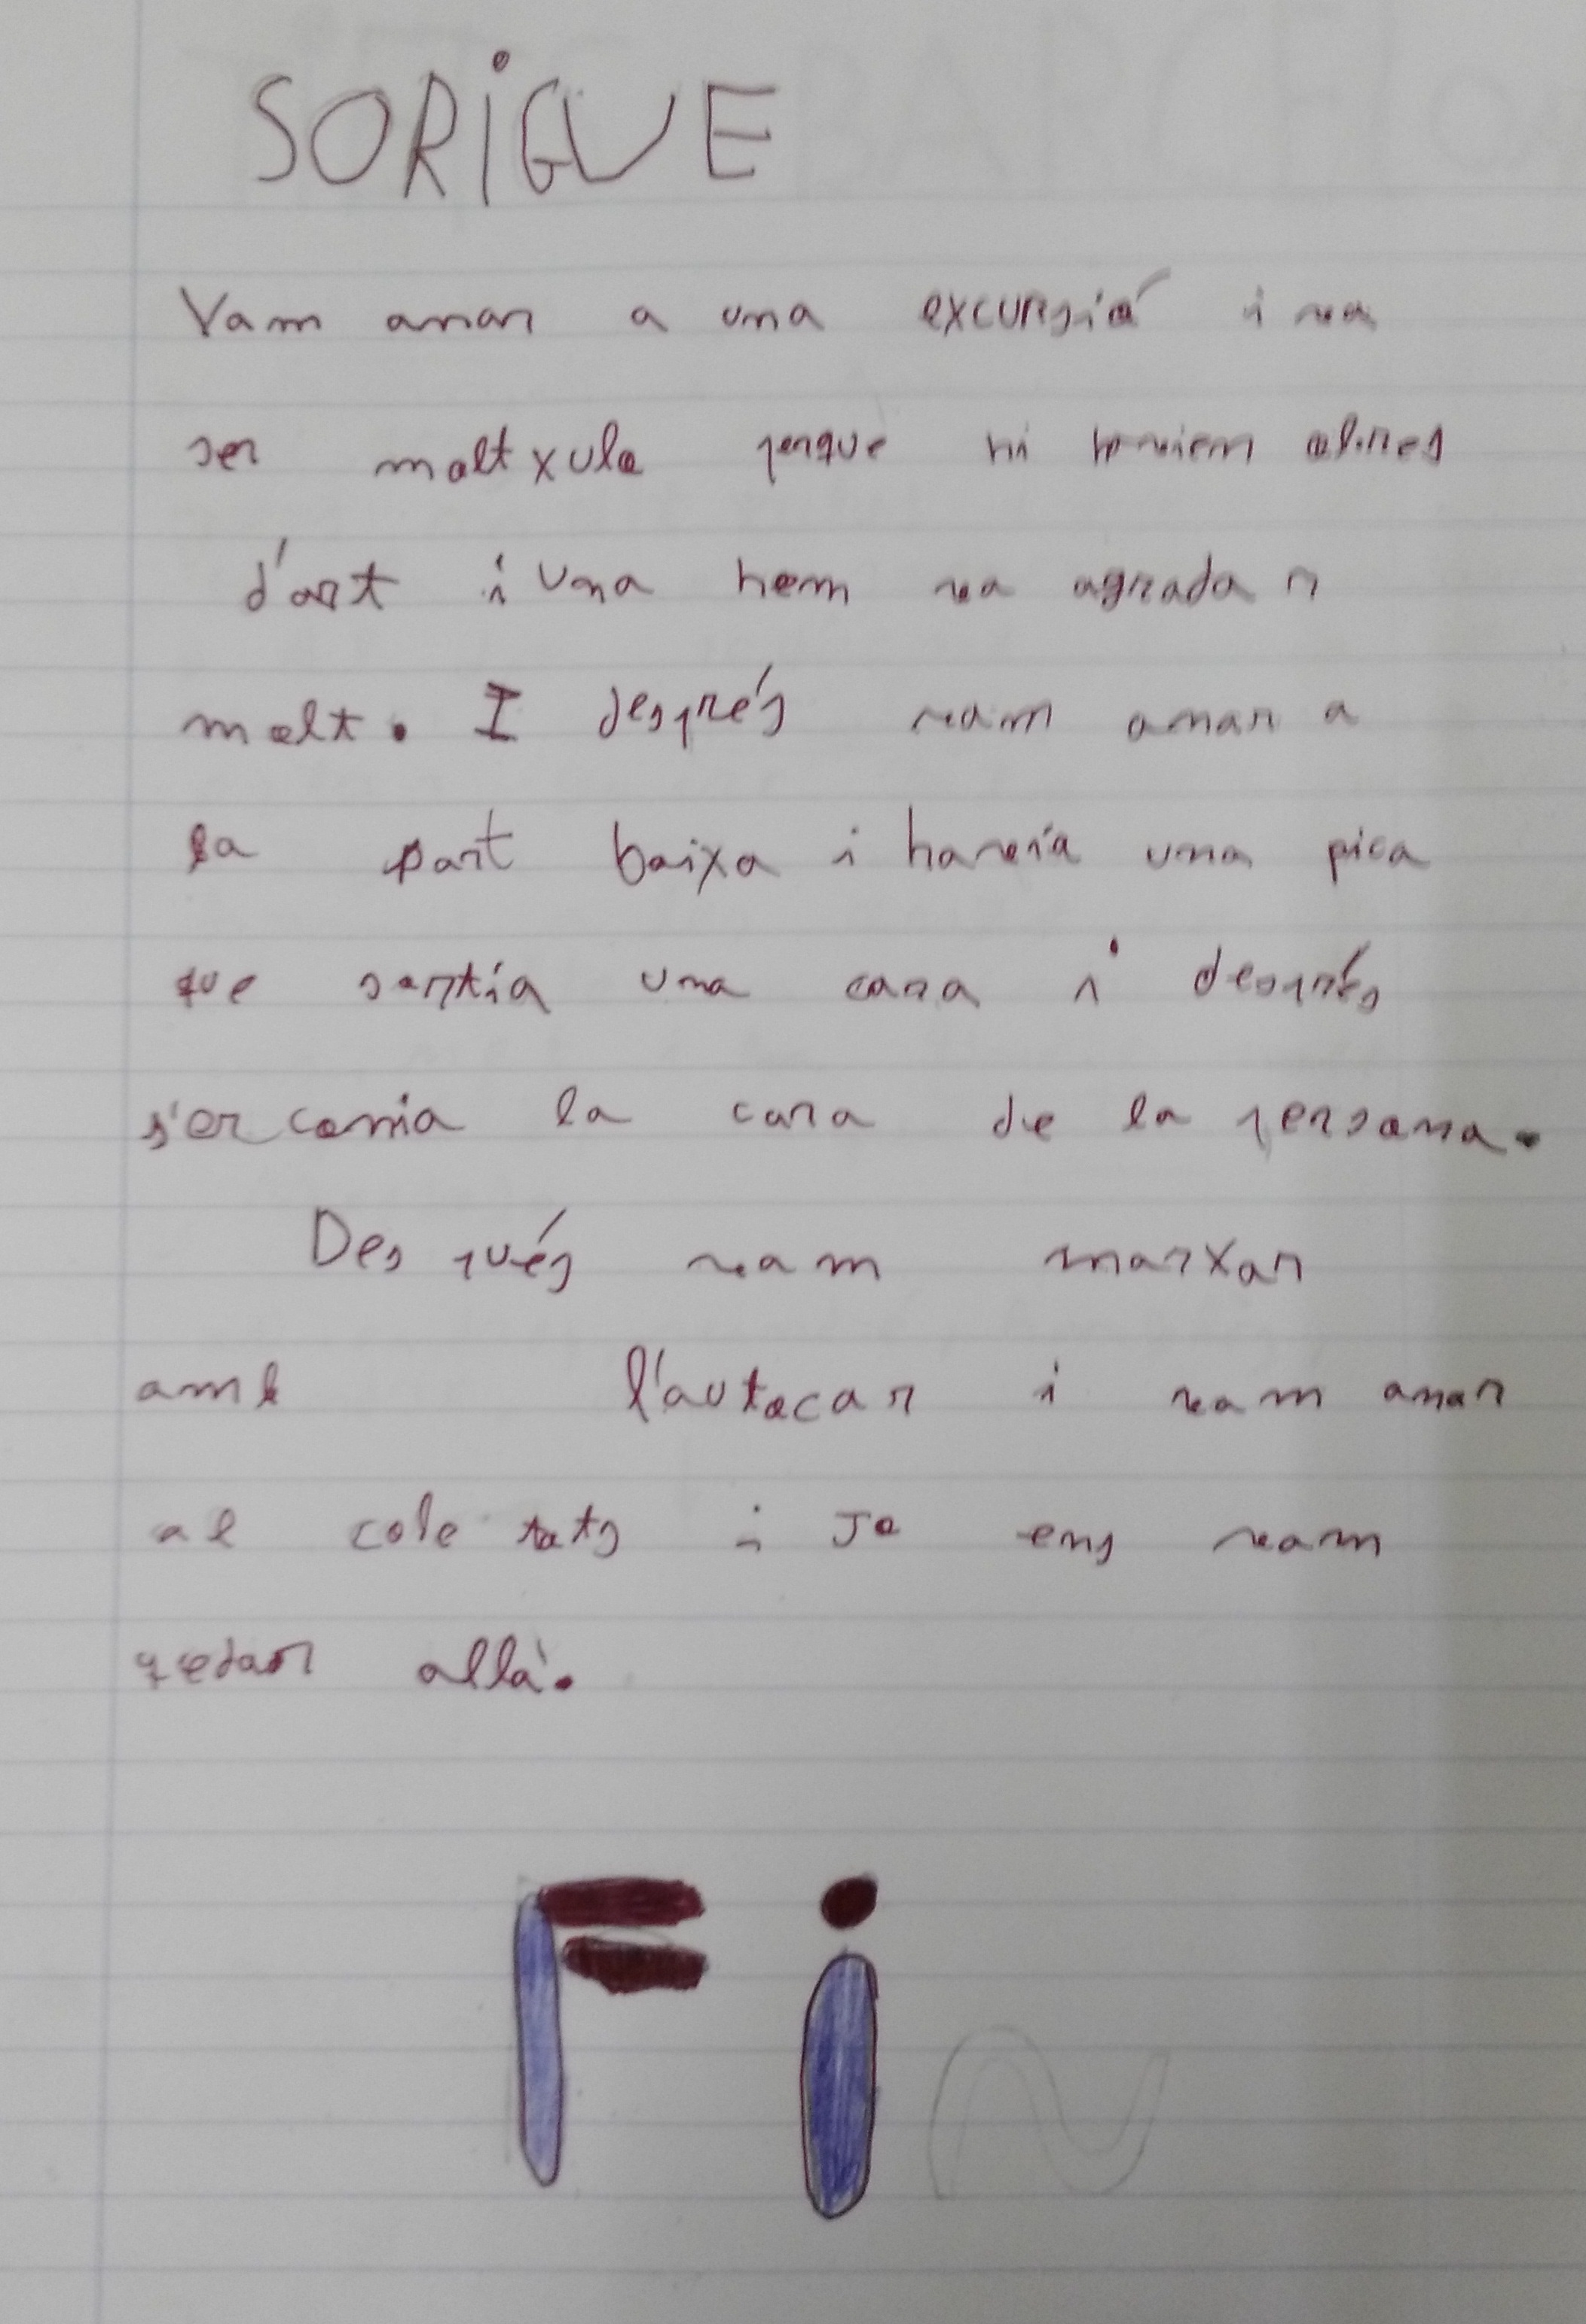 SORIGUE
Vam anar a una excursió i va
ser molt xulo perque hi haviem obres
d'art i una hem va agradar
molt. I després vam anar a
la part baixa i havía una pica
que sortía una cara i després
s'er conria la cara de la persona.
Des pués vam marxar
amb l'autocar i vam anar
al cole tots i jo ens vam
qedar allà.
Fi